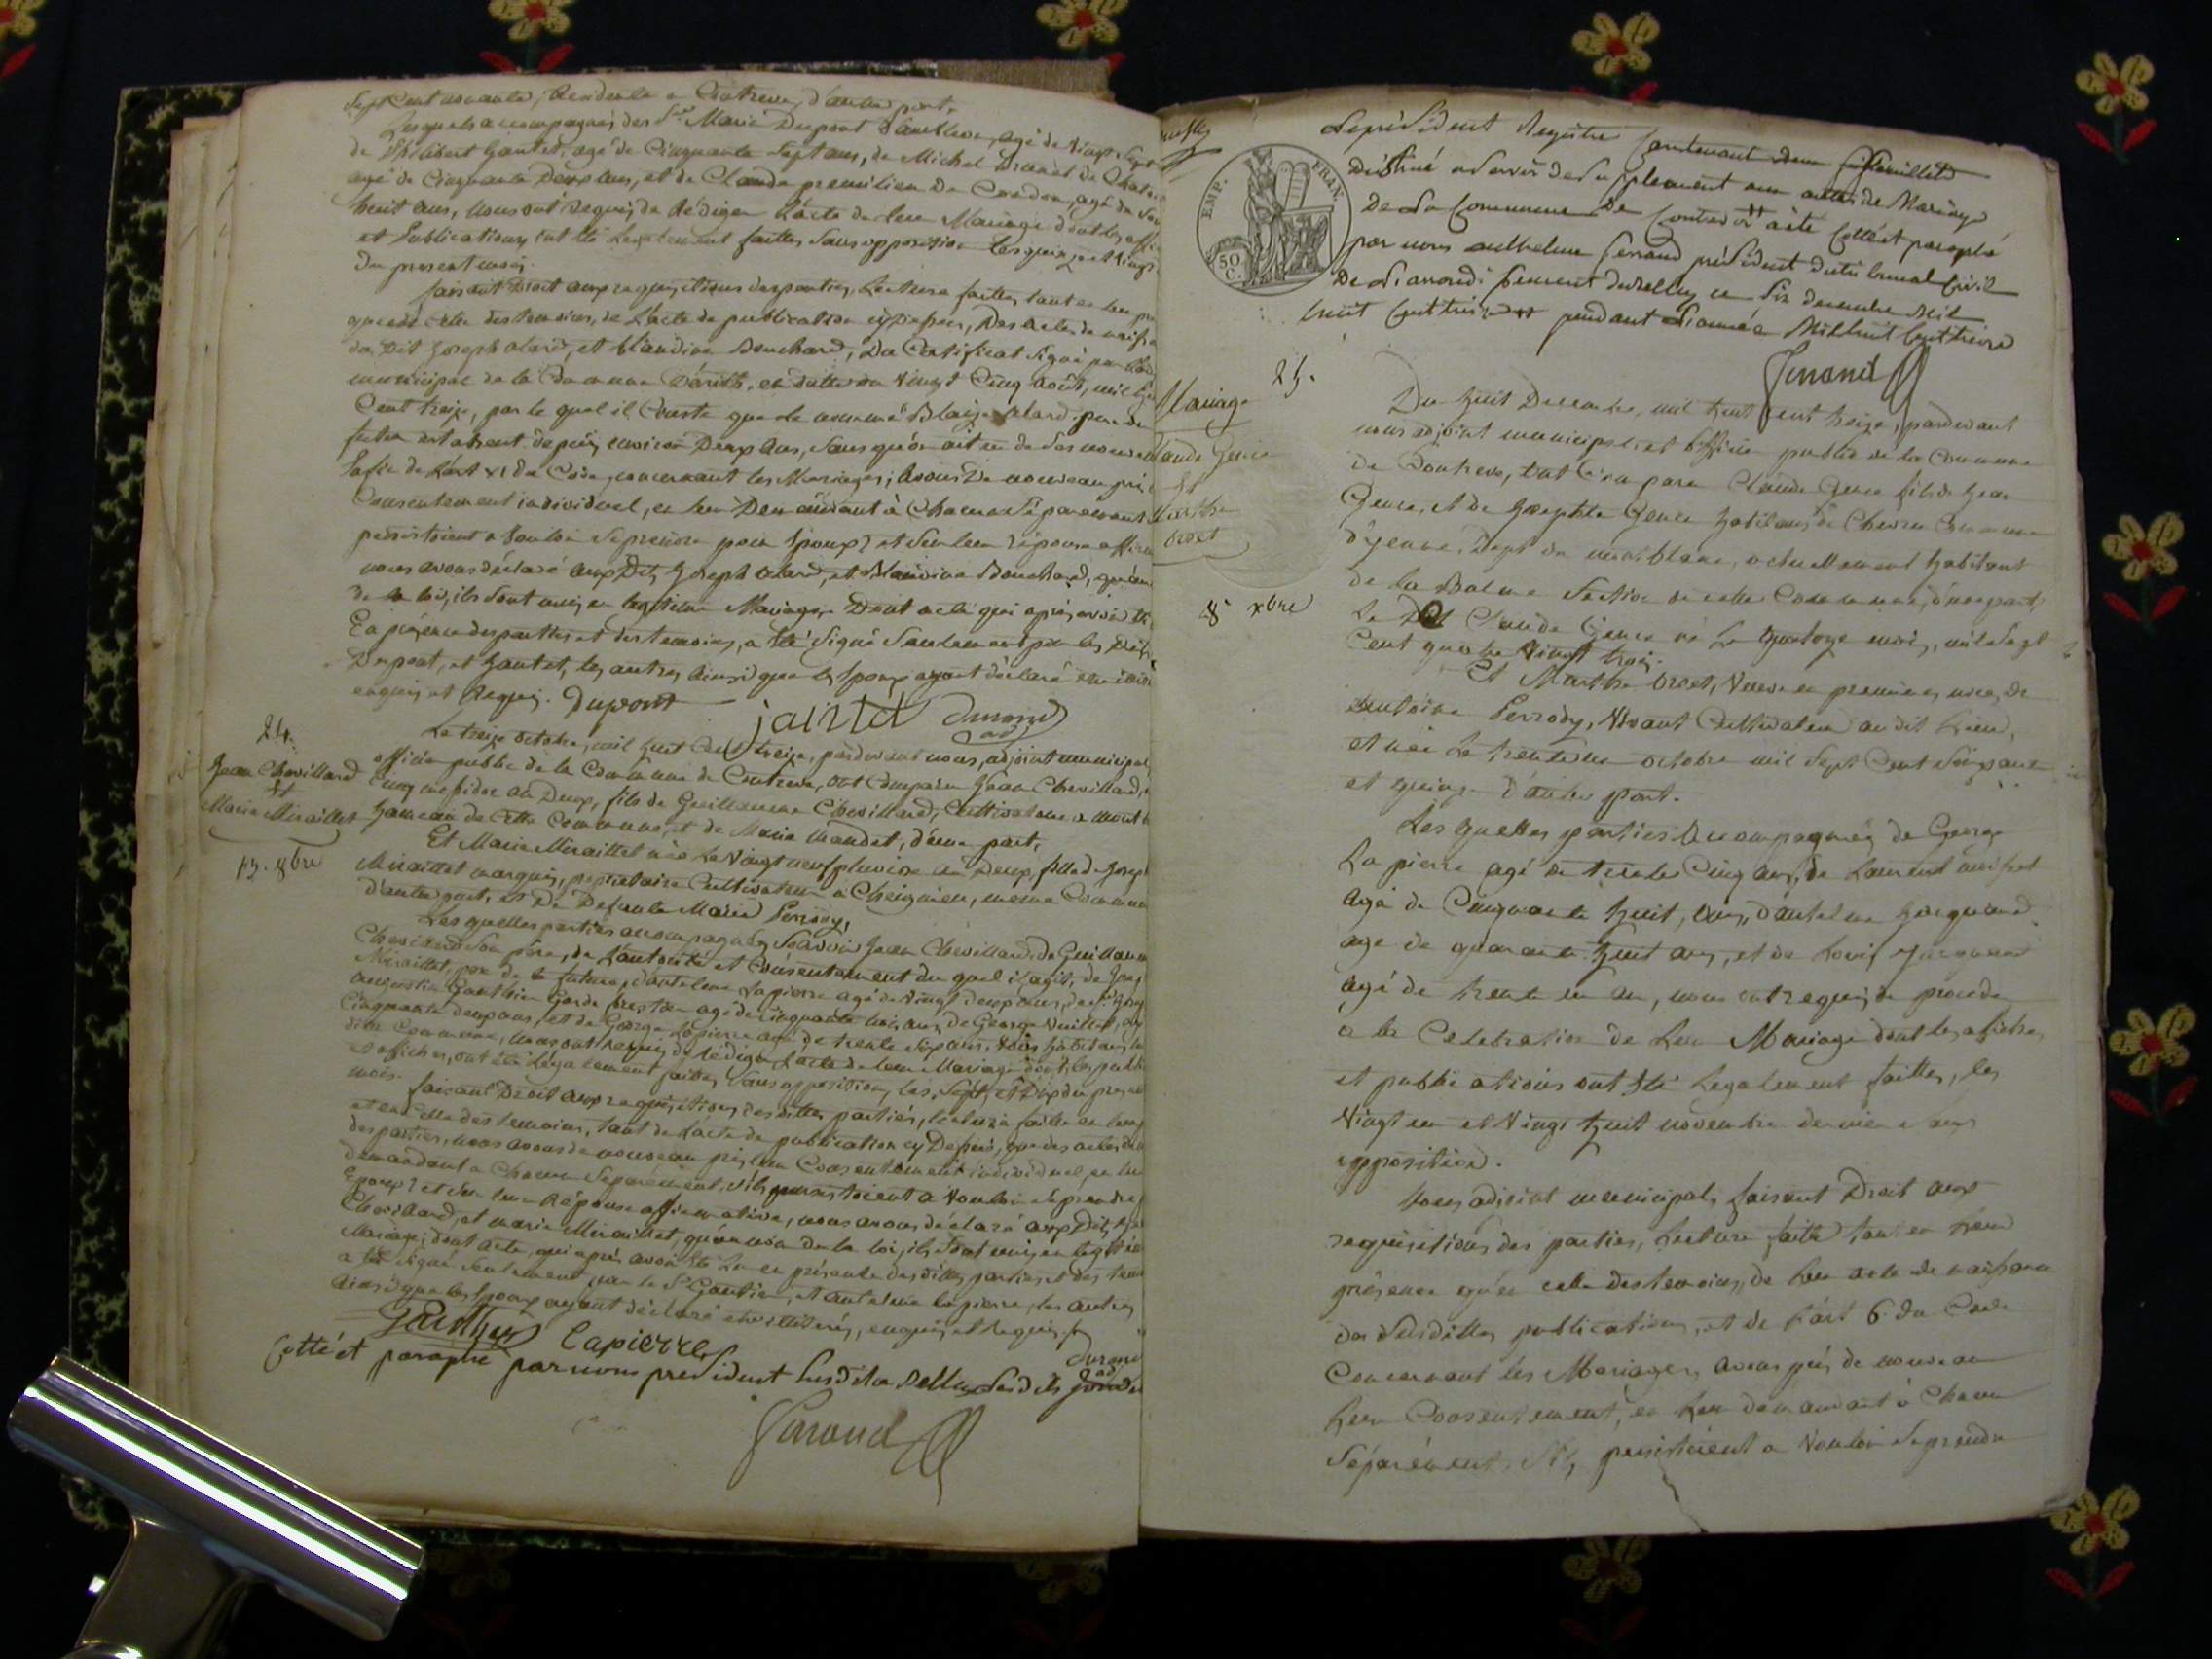 Sept Cent nonante, Residente a Contrevoz, d'autre part.
Lesquels accompagnés des Srs Marie Dupont Danthelme, agé de Vingt Sept
de Philibert Jantet, agé de Cinquante Sept ans, de Michel
agé de Cinquante Deux ans, et de Claude premilieu De Condon, agé de
huit ans, nous ont Requis de Rédiger L'acte de leur Mariage dont les
et Publications ont été Legalement faittes Sans opposition Les quinze et Vingt
Du present mois.
faisant Droit aux requisitions des parties, Lecture faitte, tant en leur
qu'en celle des temoins, de L'acte de publication cy Dessus, Des acte de
du Dit Joseph alard, et Blandine Bouchard, Du Certificat Signé par
municipal de la Commune en datte du Vingt Cinq Août, mil
Cent treize, par le quel il Conste que Le nommé Blaize alard pere du
futur est absent depuis environ Deux ans, Sans qu'on ait eu de Ses nouvelles
Enfin de L'art VI du Code, concernant les Mariages; avons De nouveau pris
Consentement individuel, en leur Demandant à Chacun Séparement
persistoient a Vouloir Se prendre pour Epoux? et Sur leur réponse affirm
nous avons déclaré aux Dits Joseph alard, et Blandine Bouchard, qu'au
de la loi, ils Sont unis en legitime Mariage, Dont acte qui après avoir
En présence des parties et des temoins, a été Signé Seulement par les Dits
Dupont, et Jantet, les autres ainsi que les Epoux ayant déclaré
enquis et Requis. Dupont jaintet Durand
adj
24.
Jean Chevillard
Et
Marie Miraillet
13. 8bre
Le treize octobre, mil huit Cent treize, pardevant nous, adjoint municipal,
officier public de la Commune de Contrevoz, ont Comparu Jean Chevillard,
Cinq messidor an Deux, fils de Guillaume Chevillard, Cultivateur a
hameau de Cette Commune, et de Marie mandet, d'une part,
Et Marie Miraillet née Le Vingt neuf pluviose an Deux, fille de Joseph
Miraillet marquis, proprietaire Cultivateur a Cheignieu, mesme Commune
d'autre part, et De Defunte Marie Perrody,
Les quelles parties accompagnées Scavoir Jean Chevillard de Guillaume
Chevillard Son père, de L'autorité et Consentement du quel il agit, de Joseph
Miraillet, père de la future, d'antelme Lapierre agé de Vingt deux ans, de
augustin Gauthier Garde forestier agé de Cinquante trois ans, de George
Cinquante deux ans, et de George Lapierre agé de trente Six ans, tous habitans
dite Commune, nous ont Requis de Rédiger L'acte de leur Mariage dont les publi
et affiches, ont été Légalement faittes Sans opposition, les Sept, et Dix du present
mois. faisant Droit aux requisitions des dittes parties, lecture faitte en leur
et en Celle des temoins, tant de L'acte de publication cy Dessus, que des actes
des parties, nous avons de nouveau pris leur Consentement individuel, en leur
demandant a Chacun Séparément, s'ils persistoient a Vouloir Se prendre
Epoux? et Sur leur Réponse affirmative, nous avons déclaré aux Dits Jean
Chevillard, et marie Miraillet, qu'au nom de la loi, ils Sont unis en legitime
Mariage; dont acte, qui après avoir été Lu en présence des dittes parties, et des tem
a été Signé Seulement par le Sr Gautier, et antelme lapierre, les autres
ainsi que les Epoux ayant déclaré être illiterés, enquis et Requis.
Gauthier Lapierre Durand
adj
Cotté et paraphé par nous president Susdit a Belley lesdits jour
Ferrand
Le président Registre Contenant deux feuillets
Destiné a Servir de Supplement aux actes de Mariage
De La Commune de Contrevoz a été Cotté et paraphé
par nous anthelme ferrand président du tribunal Civil
De L'arrondissement de Belley ce Six decembre Mil
huit Cent treize pendant L'année Mil huit Cent treize
Ferrand
EMP. FRAN.
50
C.
25.
Mariage
Claude Gence
Et
Marthe
orset
8 xbre
Du huit Decembre, mil huit Cent treize, pardevant
nous adjoint municipal et officier public de la Commune
de Contrevoz, ont Comparu Claude Gence fils de Jean
Gence, et de Josephte Gence habitans de Commune
d'yenne, Dept du montblanc, actuellement habitant
de la Balme Section de cette Commune, d'une part,
Le Dit Claude Gence né Le quatorze mars, mil Sept
Cent quatre Vingt trois.
Et Marthe orset, Veuve en premières noces, de
antoine Perrody, Vivant Cultivateur au dit Lieu,
et née Le trente un octobre mil Sept Cent Soixante
et quinze d'autre part.
Les quelles parties accompagnées de George
Lapierre agé de trente Cinq ans, de Laurent
agé de Cinquante huit, ans, d'antelme
agé de quarante huit ans, et de Louis
agé de trente un an, nous ont requis de proceder
a la Celebration de Leur Mariage dont les affiches,
et publications ont été Legalement faittes, les
Vingt un et Vingt huit novembre dernier Sans
opposition.
Nous adjoint municipal, faisant Droit aux
requisitions des parties, Lecture faitte tant en Leur
présence qu'en celle des temoins, de leur acte de naissance
des Susdittes publications, et de L'art 6. du Code
Concernant les Mariages, avons pris de nouveau
Leur Consentement, en Leur demandant à Chacun
Séparément, S'ils persistoient a Vouloir Se prendre